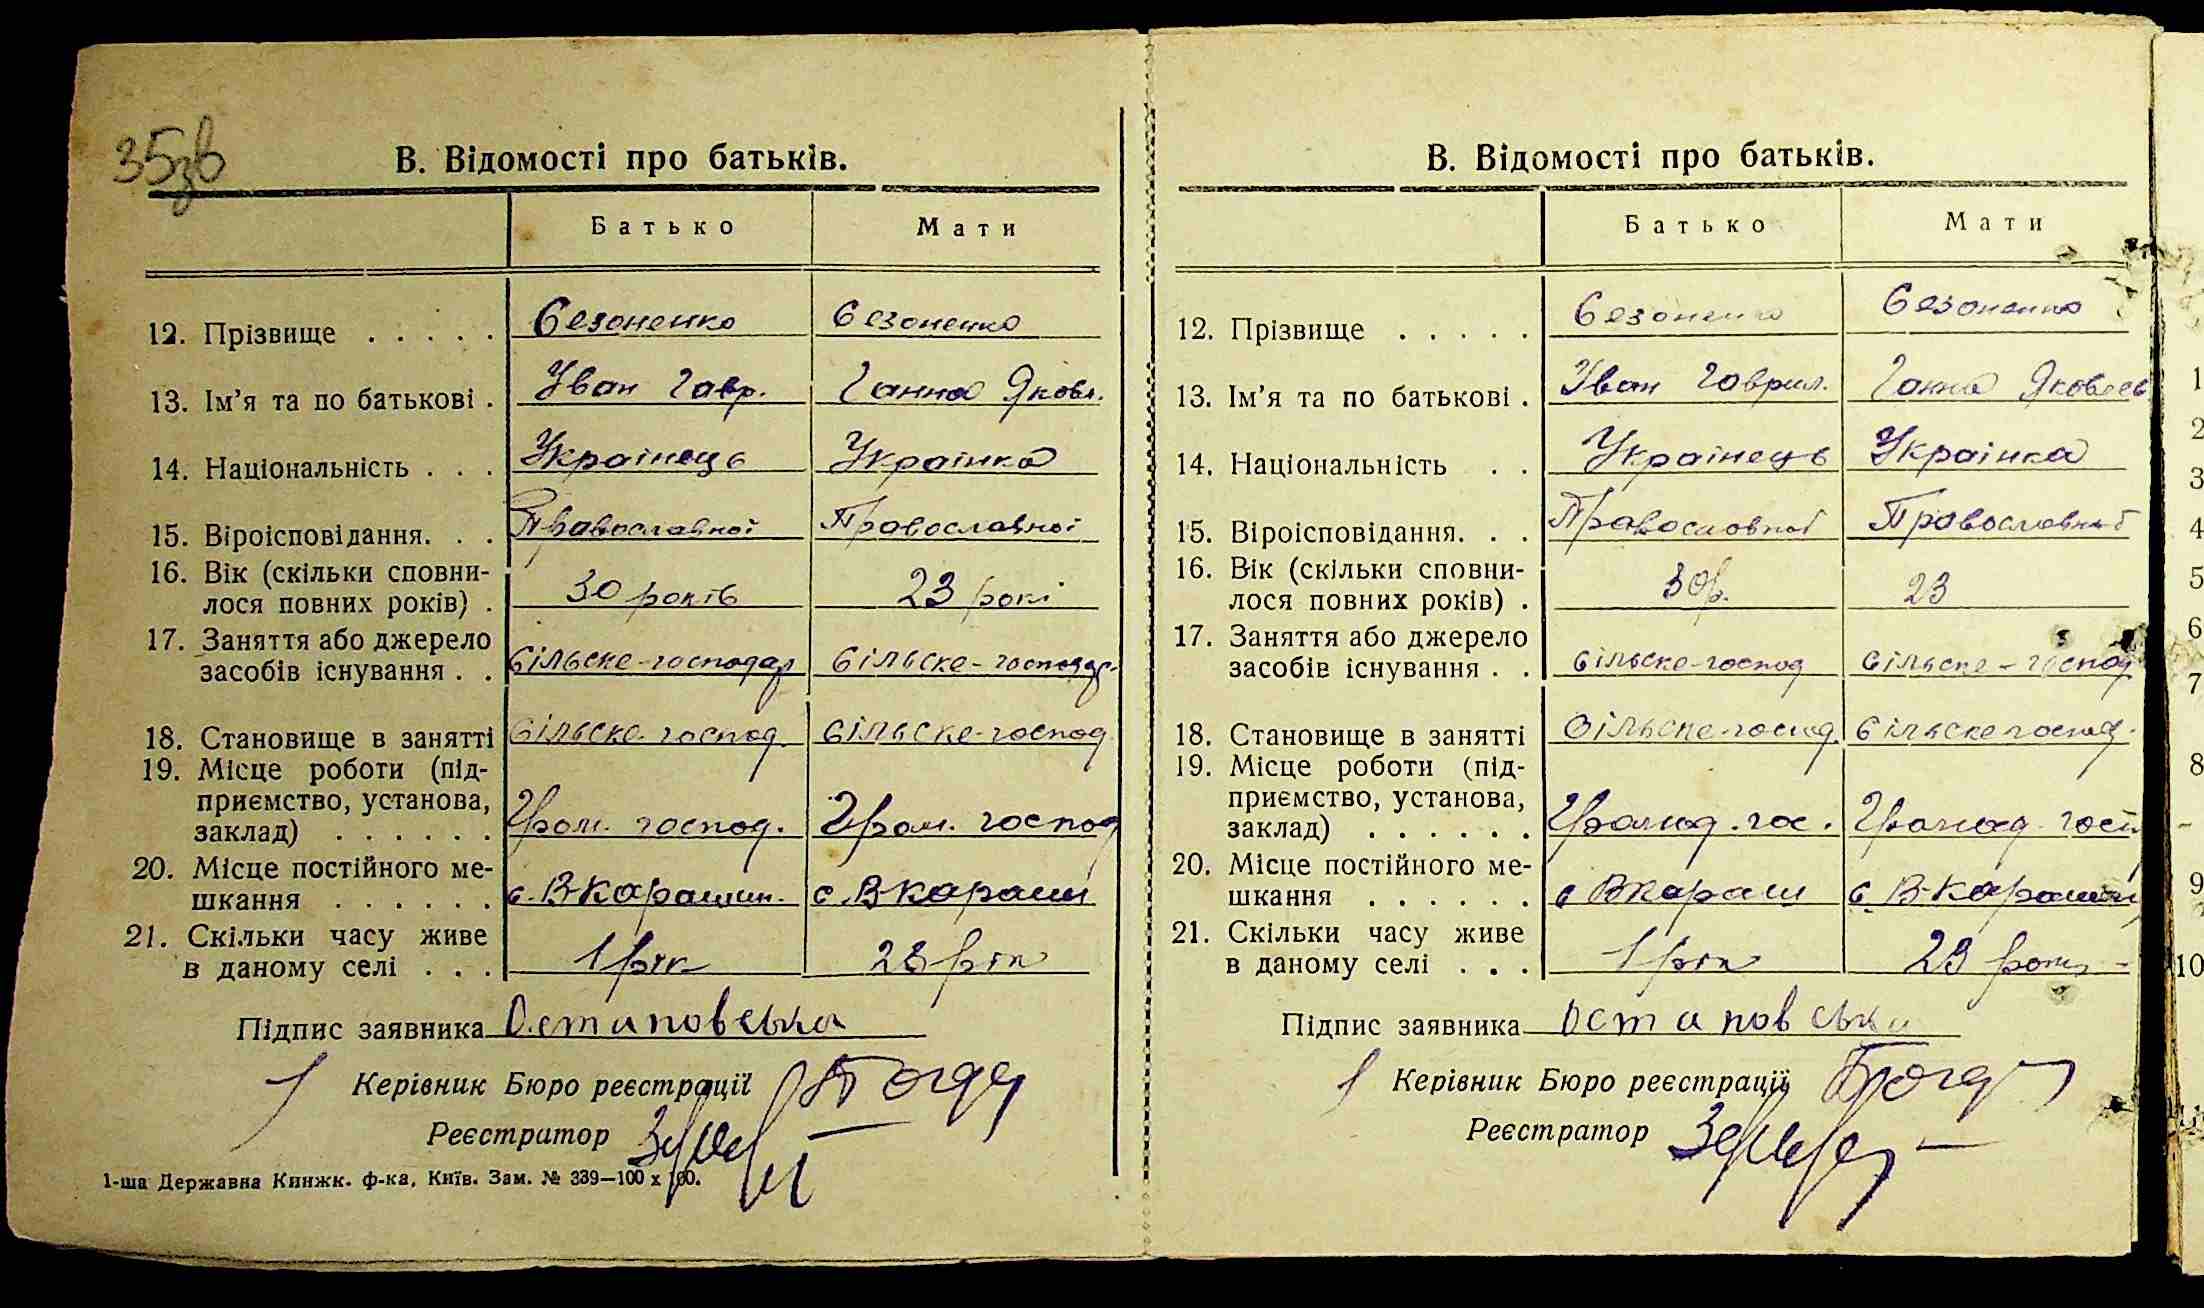 35зв
В. Відомості про батьків.
Батько Мати
12. Прізвище . . . . . Сезоненко Сезоненко
13. Ім'я та по батькові . Іван Гавр. Ганна Яковл.
14. Національність . . . Українець Українка
15. Віроісповідання. . . Православної Православної
16. Вік (скільки сповни-
лося повних років) . 30 років 23 рокі
17. Заняття або джерело
засобів існування . . сільске-господар сільске-господар.
18. Становище в занятті сільске-господ. сільске-господ.
19. Місце роботи (під-
приємство, установа,
заклад) . . . . . . Гром. господ. Гром. господ
20. Місце постійного ме-
шкання . . . . . . с. В-Карашин. с. В Караши
21. Скільки часу живе
в даному селі . . . 1 рік 23 рік
Підпис заявника Остаповська
Керівник Бюро реєстрації
Реєстратор
1-ша Державна Книжк. ф-ка, Київ. Зам. № 339—100 х 100.
В. Відомості про батьків.
Батько Мати
12. Прізвище . . . . . Сезоненко Сезоненко
13. Ім'я та по батькові . Іван Гаврил. Ганна Яковлев
14. Національність . . Українець Українка
15. Віроісповідання. . . Православної Православної
16. Вік (скільки сповни-
лося повних років) . 30 р. 23
17. Заняття або джерело
засобів існування . . сільске-господ сільске-господ
18. Становище в занятті сільске-господ. сільске господ.
19. Місце роботи (під-
приємство, установа,
заклад) . . . . . . Громад. гос. Громад. госп
20. Місце постійного ме-
шкання . . . . . . с В Караш с. В-Карашин
21. Скільки часу живе
в даному селі . . . 1 рік 23 роки
Підпис заявника Остаповська
Керівник Бюро реєстрації
Реєстратор
1
2
3
4
5
6
7
8
9
10
11